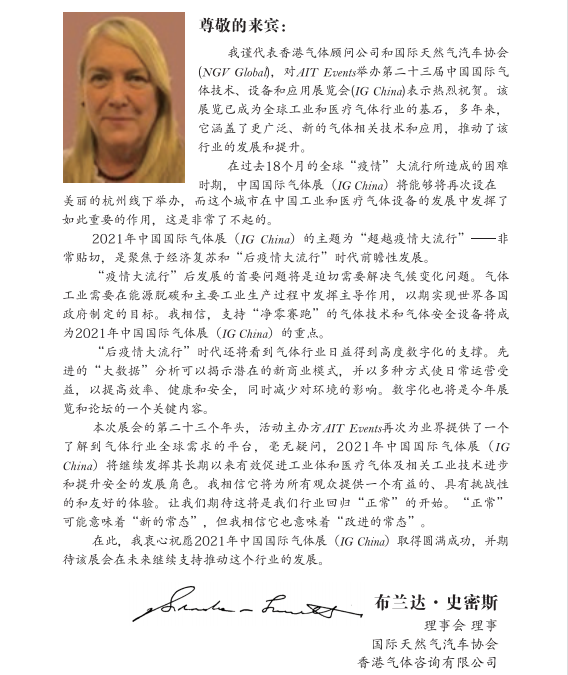 尊敬的来宾：
我谨代表香港气体顾问公司和国际天然气汽车协会
(NGV Global)，对AIT Events举办第二十三届中国国际气
体技术、设备和应用展览会(IG China)表示热烈祝贺。该
展览已成为全球工业和医疗气体行业的基石，多年来，
它涵盖了更广泛、新的气体相关技术和应用，推动了该
行业的发展和提升。
在过去18个月的全球“疫情”大流行所造成的困难
时期，中国国际气体展（IG China）将能够将再次设在
美丽的杭州线下举办，而这个城市在中国工业和医疗气体设备的发展中发挥了
如此重要的作用，这是非常了不起的。
2021年中国国际气体展（IG China）的主题为“超越疫情大流行”——非
常贴切，是聚焦于经济复苏和“后疫情大流行”时代前瞻性发展。
“疫情大流行”后发展的首要问题将是迫切需要解决气候变化问题。气体
工业需要在能源脱碳和主要工业生产过程中发挥主导作用，以期实现世界各国
政府制定的目标。我相信，支持“净零赛跑”的气体技术和气体安全设备将成
为2021年中国国际气体展（IG China）的重点。
“后疫情大流行”时代还将看到气体行业日益得到高度数字化的支撑。先
进的“大数据”分析可以揭示潜在的新商业模式，并以多种方式使日常运营受
益，以提高效率、健康和安全，同时减少对环境的影响。数字化也将是今年展
览和论坛的一个关键内容。
本次展会的第二十三个年头，活动主办方AIT Events再次为业界提供了一个
了解到气体行业全球需求的平台，毫无疑问，2021年中国国际气体展（IG
China）将继续发挥其长期以来有效促进工业体和医疗气体及相关工业技术进步
和提升安全的发展角色。我相信它将为所有观众提供一个有益的、具有挑战性
的和友好的体验。让我们期待这将是我们行业回归“正常”的开始。“正常”
可能意味着“新的常态”，但我相信它也意味着“改进的常态”。
在此，我衷心祝愿2021年中国国际气体展（IG China）取得圆满成功，并期
待该展会在未来继续支持推动这个行业的发展。
布兰达·史密斯
理事会 理事
国际天然气汽车协会
香港气体咨询有限公司